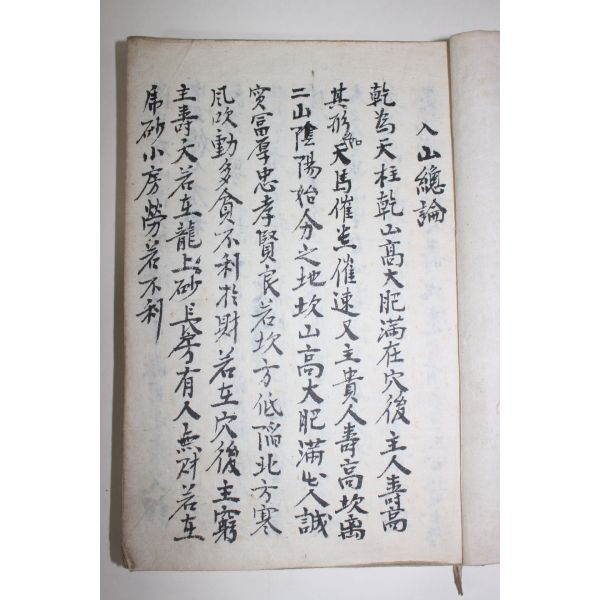 入山總論
乾為天柱乾山高大肥滿在穴後主人壽高
其形如天馬催官催速又主貴人壽高坎离
二山陰陽始分之地坎山高大肥滿出人誠
實富厚忠孝賢良若坎方低陷北方寒
風吹動多貪不利於財若在穴後主窮
主壽夭若在龍上砂長房有人無財若在
虎砂小房勞若不利